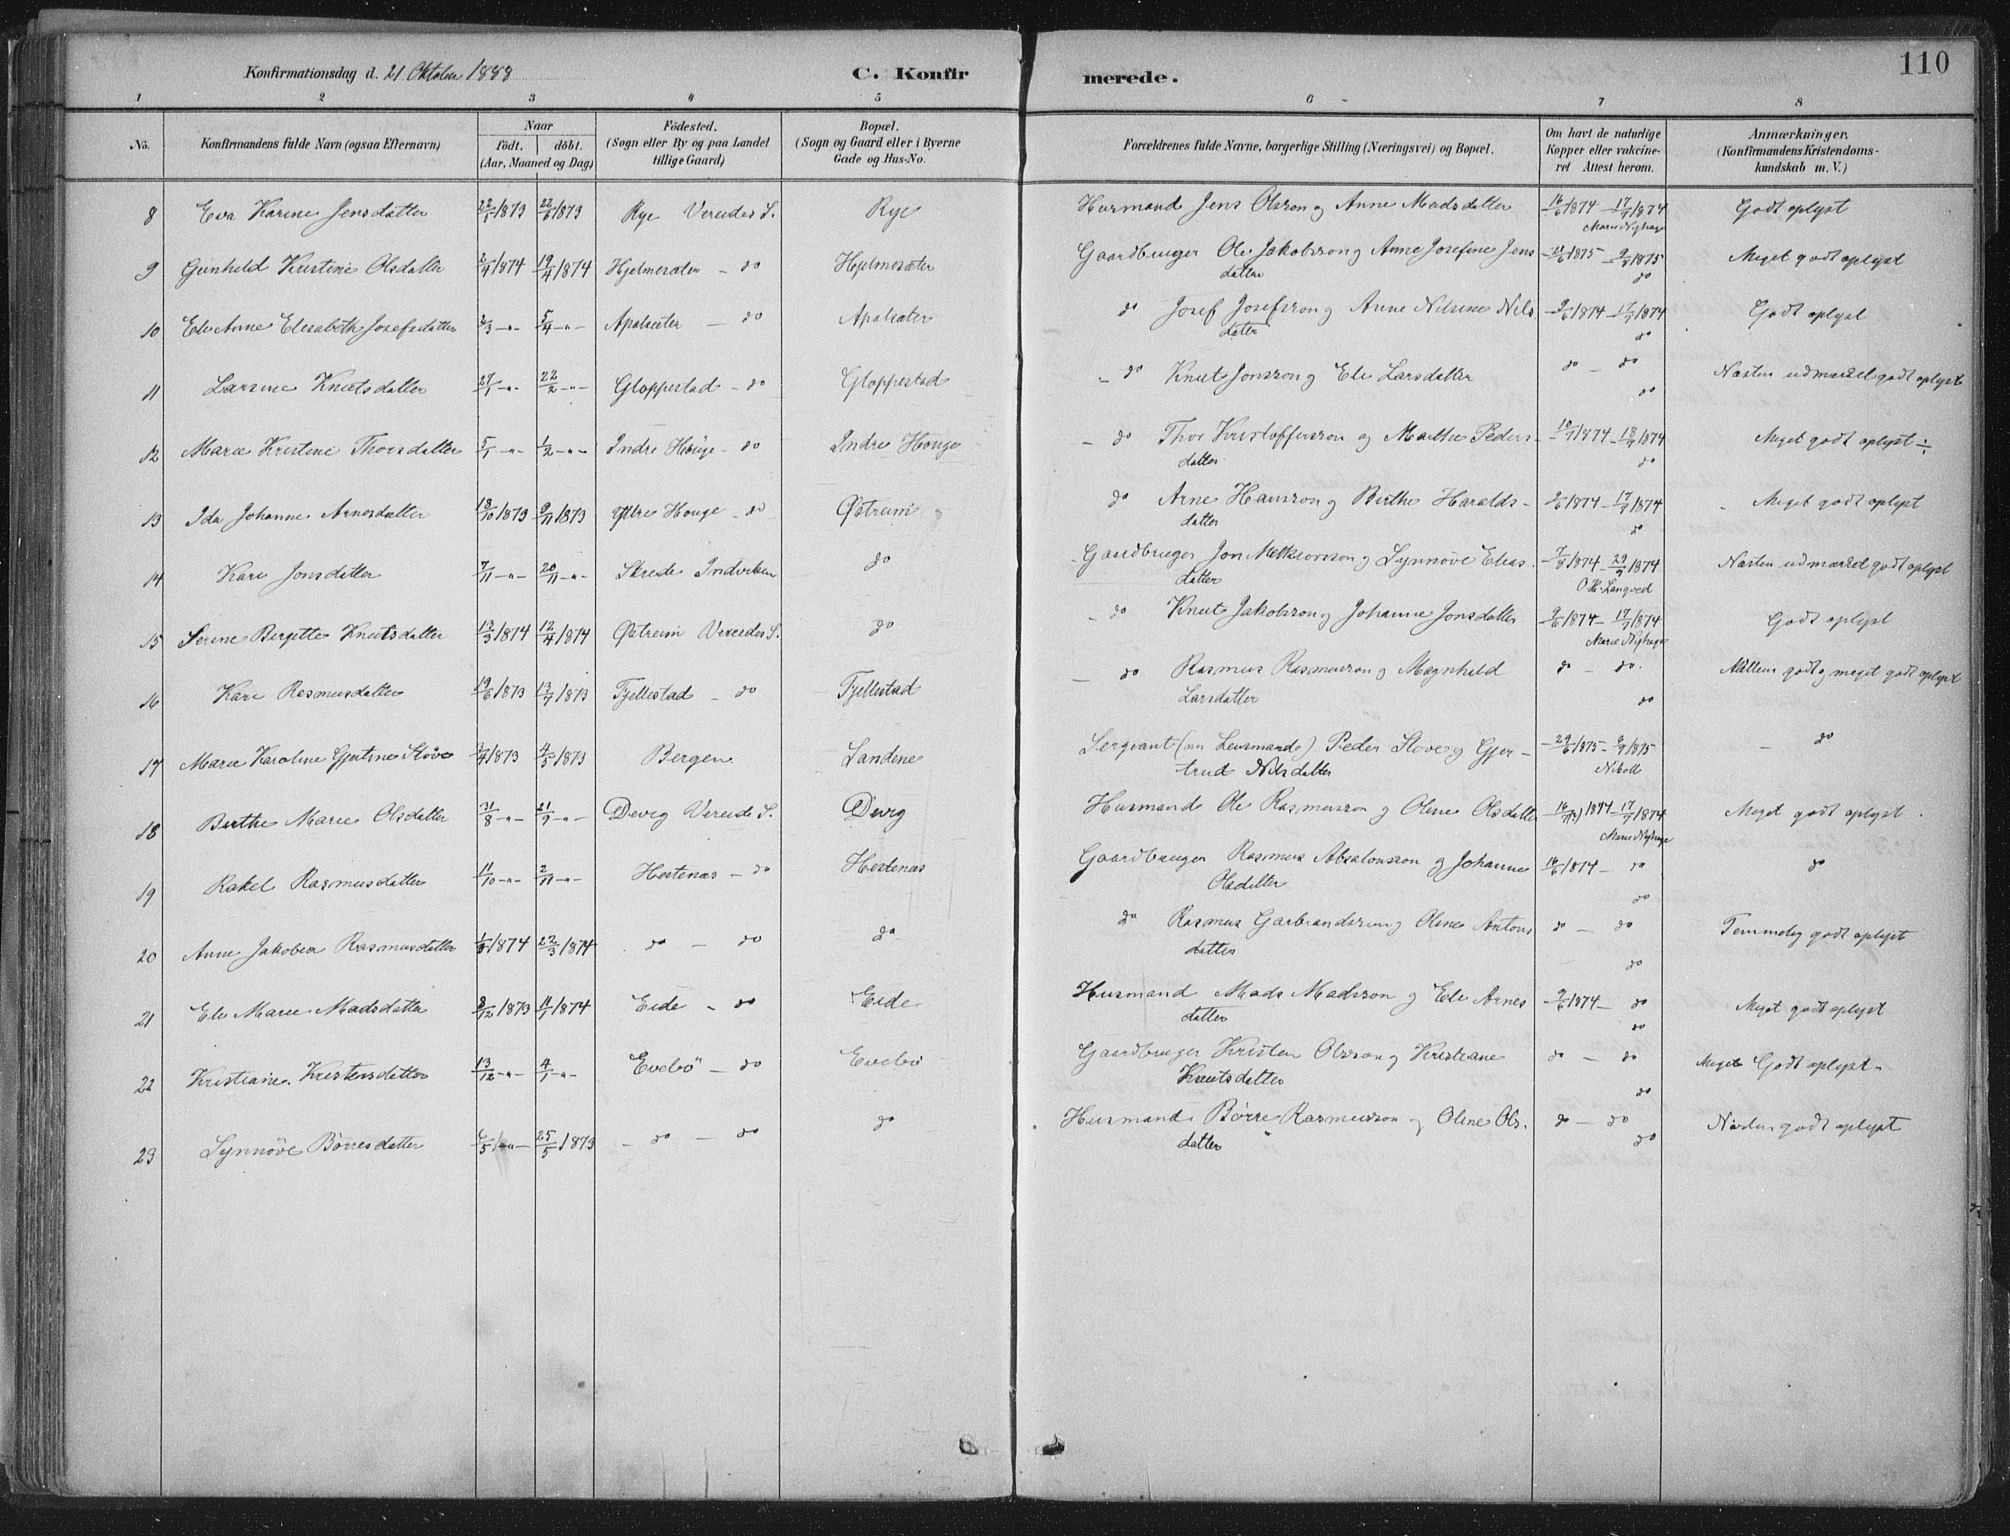 Konfirmationsdag d. 21 Oktober 1888
C. Konfirmerede.
110
1 2 3 4 5 6 7 8
No. Konfirmandens fulde Navn (ogsaa Efternavn) Naar födt. döbt. (Aar, Maaned og Dag) Födested. (Sogn eller By og paa Landet tillige Gaard) Bopæl. (Sogn og Gaard eller i Byerne Gade og Hus-No. Forældrenes fulde Navne, borgerlige Stilling (Næringsvei) og Bopæl. Om havt de naturlige Kopper eller vakcineret Attest herom. Anmærkninger. (Konfirmandens Kristendomskundskab m. V.)
8 Eva Karine Jensdatter 1873 22/6 1873 Rye Vereides S. Rye Husmand Jens Olsson og Anne Madsdatter 16/6 1874 - 17/7 1874 Marie Nyhage Godt oplyst
9 Gunhild Kristine Olsdatter 1874 19/4 1874 Hjelmesæter - do Hjelmesæter Gaardbruger Ole Jakobsson og Anne Josefine Jensdatter 1875 - 1875 do Meget godt oplyst
10 Eli Anne Elisabeth Josefsdatter 5/4 -"- Apalsæter - do Apalsæter do Josef Josefsson og Anne Nilsine Nilsdatter 9/6 1874 - 17/7 1874 do Godt oplyst
11 Larsine Knutsdatter 27/1 -"- 22/2 -"- Gloppestad - do Gloppestad - do Knut Jonsson og Eli Larsdatter do - do do Næsten udmærket godt oplyst
12 Marie Kristine Thorsdatter 5/1 -"- 1/2 -"- Indre Houge - do Indre Houge - do Thor Kristoffersson og Marthe Pedersdatter 10/7 1874 - 18/7 1874 do Meget godt oplyst ÷
13 Ida Johanne Arnesdatter 18/10 1873 9/11 1873 Yttre Houge - do Østreim do Arne Hansson og Birthe Haraldsdatter 9/6 1874 - 17/7 1874 do Meget godt oplyst
14 Kari Jonsdatter 7/11 -"- 20/11 -"- Skrede Indviken do Gaardbruger Jon Melkiorsson og Synnöve Eliasdatter 7/8 1874 - 29/9 1874 O.K. Langved Næsten udmærket godt oplyst
15 Serine Birgitte Knutsdatter 13/3 1874 12/4 1874 Østreim Vereides S. do - do Knut Jakobsson og Johanne Jonsdatter 9/6 1874 - 17/7 1874 Marie Nyhage Godt oplyst
16 Kari Rasmusdatter 19/6 1873 13/7 1873 Tjellestad - do Tjellestad - do Rasmus Rasmusson og Magnhild Larsdatter do - do do Mellem godt og meget godt oplyst
17 Marie Karoline Gjertine Slöve 1873 4/5 1873 Bergen Sandene Sergeant (nu Lensmand) Peder Slove og Gjertrud Nilsdatter 29/6 1875 - 1875 - do
18 Birthe Marie Olsdatter 31/8 -"- 21/9 -"- Devig Vereide S. Devig Husmand Ole Rasmusson og Oline Olsdatter 1874 - 17/7 1874 Marie Nyhage Meget godt oplyst.
19 Rakel Rasmusdatter 11/10 -"- 2/11 -"- Hestenæs - do Hestenæs Gaardbruger Rasmus Absalonsson og Johanne Olsdatter 16/6 1874 - do do do
20 Anne Jakobea Rasmusdatter 1/3 1874 22/3 1874 do - do do do Rasmus Garbrandsson og Oline Antonsdatter do - do do Temmelig godt oplyst
21 Eli Marie Madsdatter 8/12 1873 11/1 1874 Eide - do Eide Husmand Mads Madsson og Eli Arnesdatter 9/6 1874 - do do Meget godt oplyst
22 Kristiane Kristensdatter 13/12 -"- 4/1 -"- Evebö - do Evebö Gaardbruger Kristen Olsson og Kristiane Knutsdatter do - do do Meget Godt oplyst
23 Synnöve Börresdatter 25/5 1873 - do - do do Husmand Börre Rasmusson og Oline Olsdatter do - do do Næsten godt oplyst